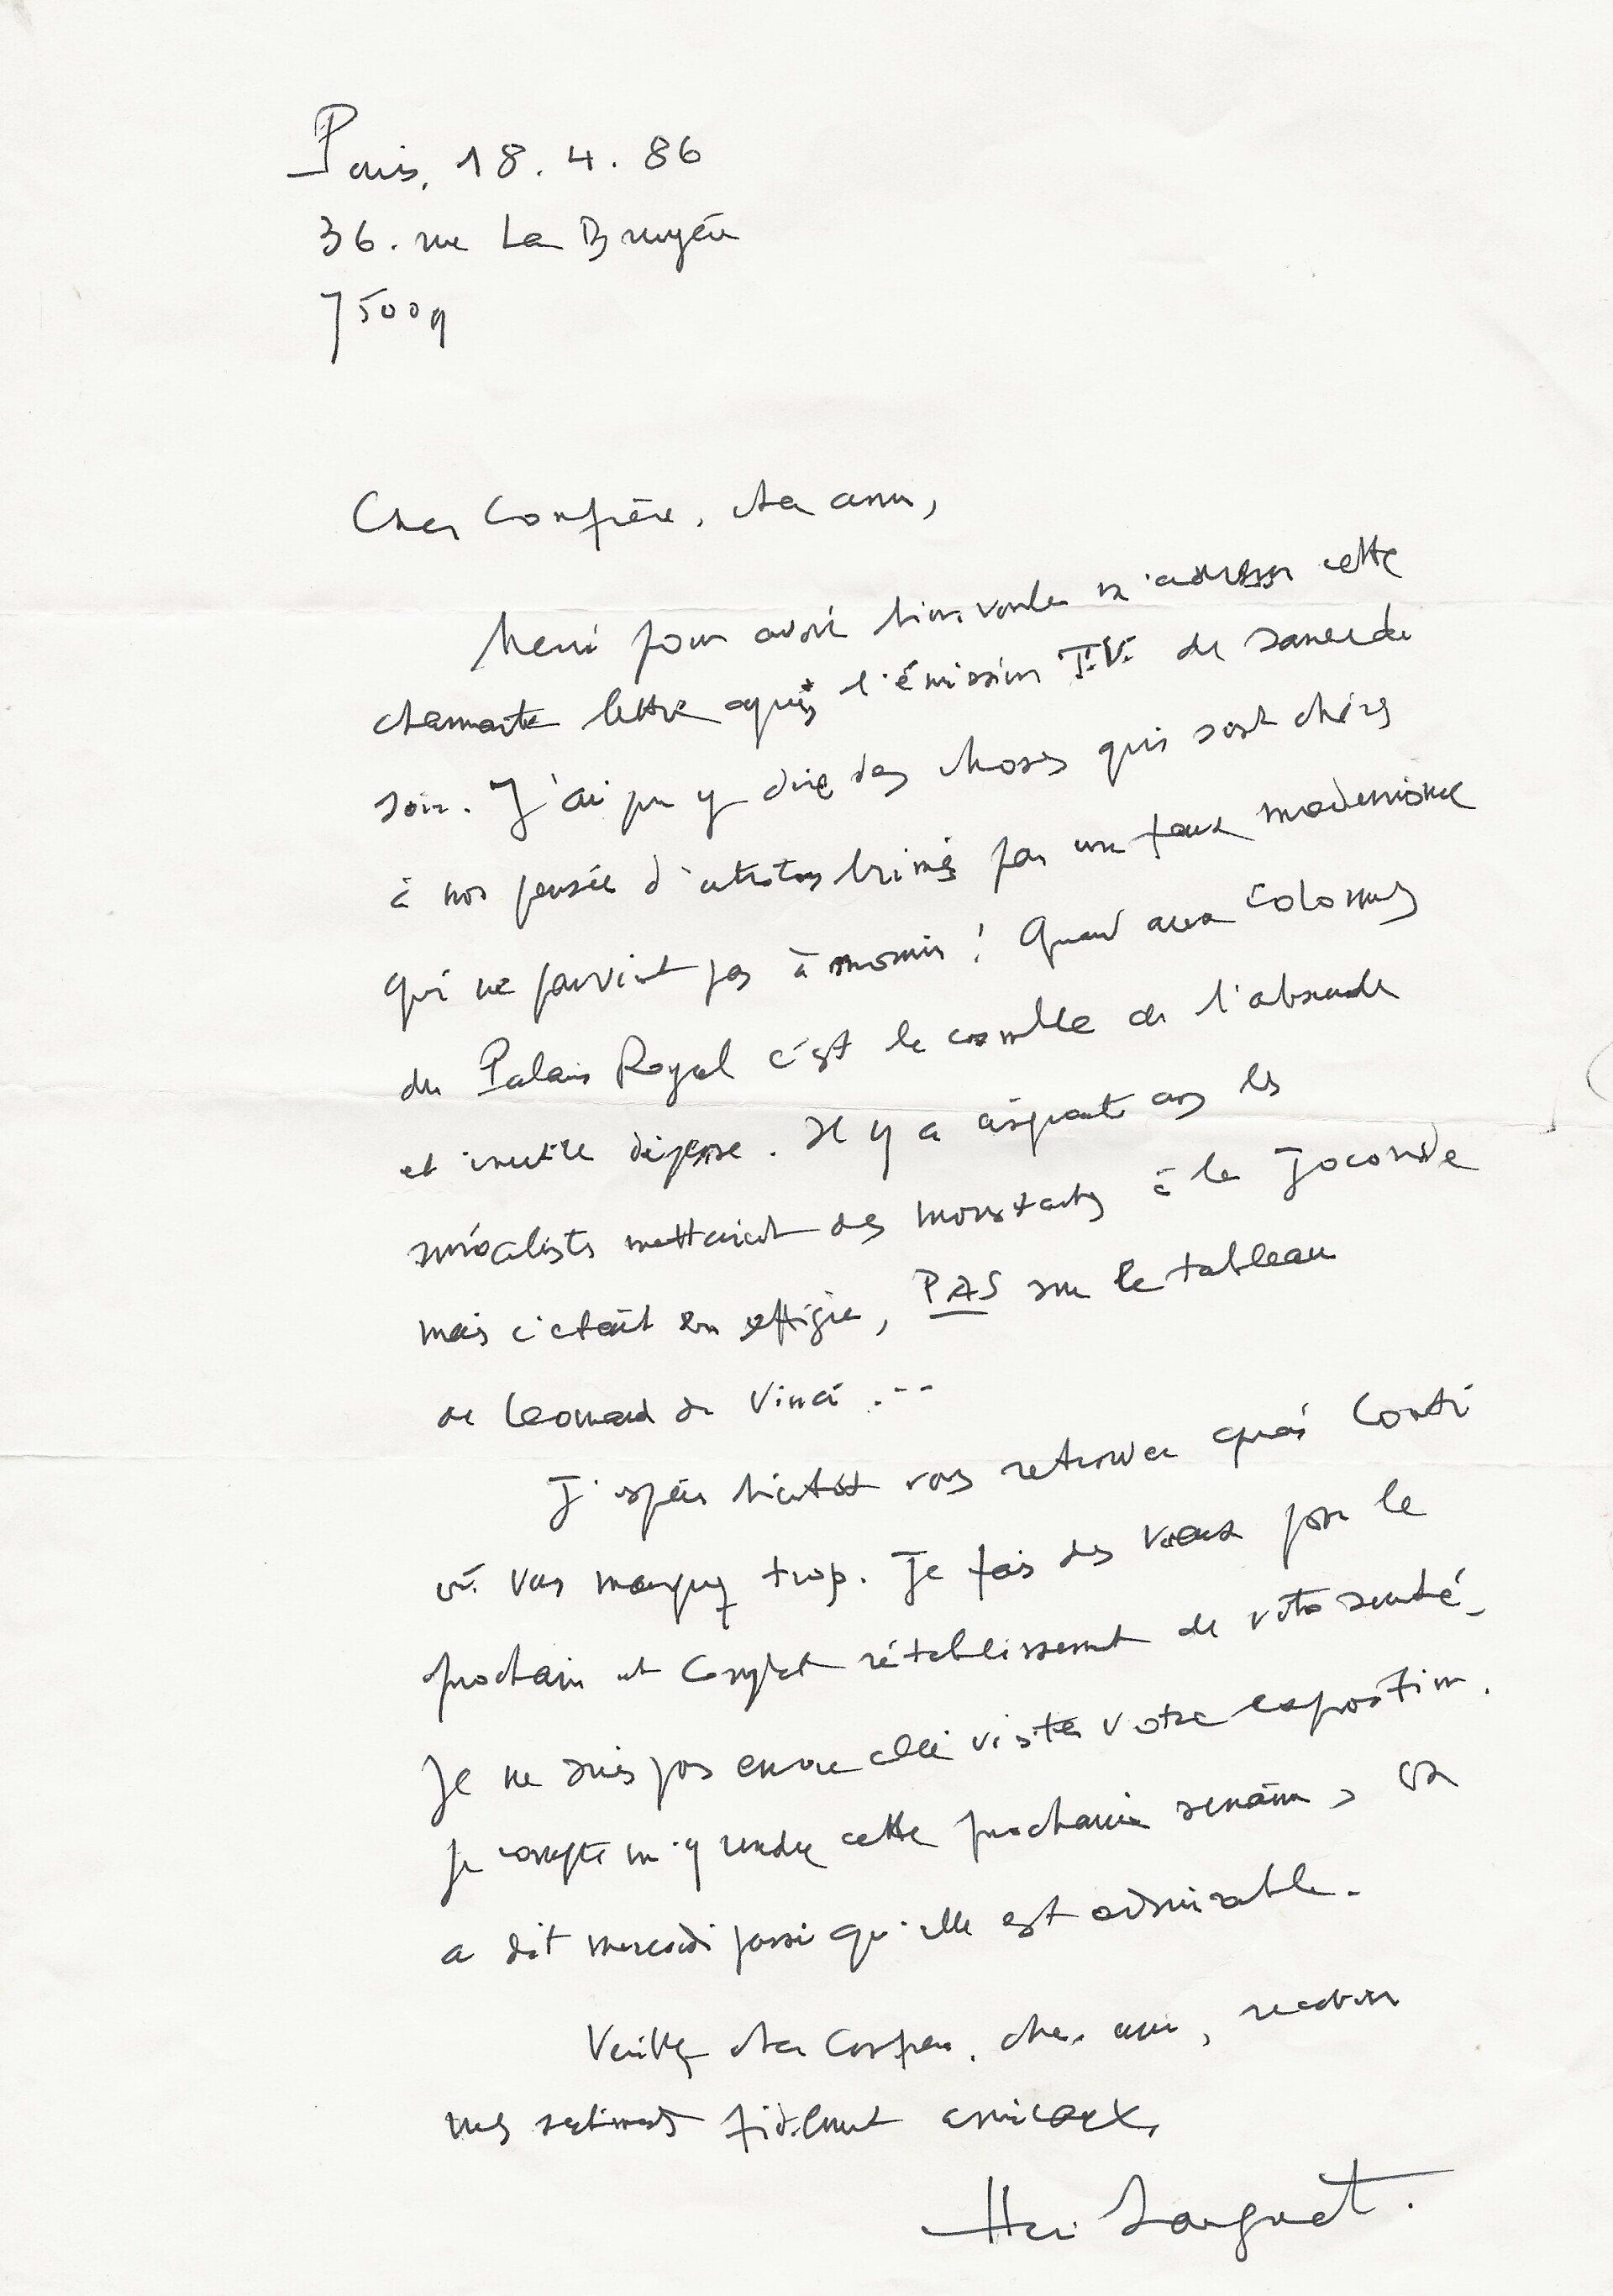 Paris, 18.4.86
36. rue La Bruyère
75009
Cher Confrère, cher ami,
Merci pour avoir bien voulu m'adresser cette
charmante lettre après l'émission T.V. de samedi
soir. J'ai pu y dire des choses qui sont chères
à nos pensées d'artistes brimés par un faux modernisme
qui ne parvient pas à mourir! Quand aux colonnes
du Palais Royal c'est le comble de l'absurde
et inutile dépense. Il y a cinquante ans les
surréalistes mettaient des moustaches à la Joconde
mais c'était en effigie, PAS sur le tableau
de Léonard de Vinci ...
J'espère bientôt vous retrouver quai Conti
où vous manquez trop. Je fais des vœux pour le
prochain et complet rétablissement de votre santé.
Je ne suis pas encore allé visiter votre exposition.
Je compte m'y rendre cette prochaine semaine,
a dit mercredi passé qu'elle est admirable.
Veuillez cher Confrère, cher ami, recevoir
mes sentiments fidèlement amicaux,
Henri Sauguet.